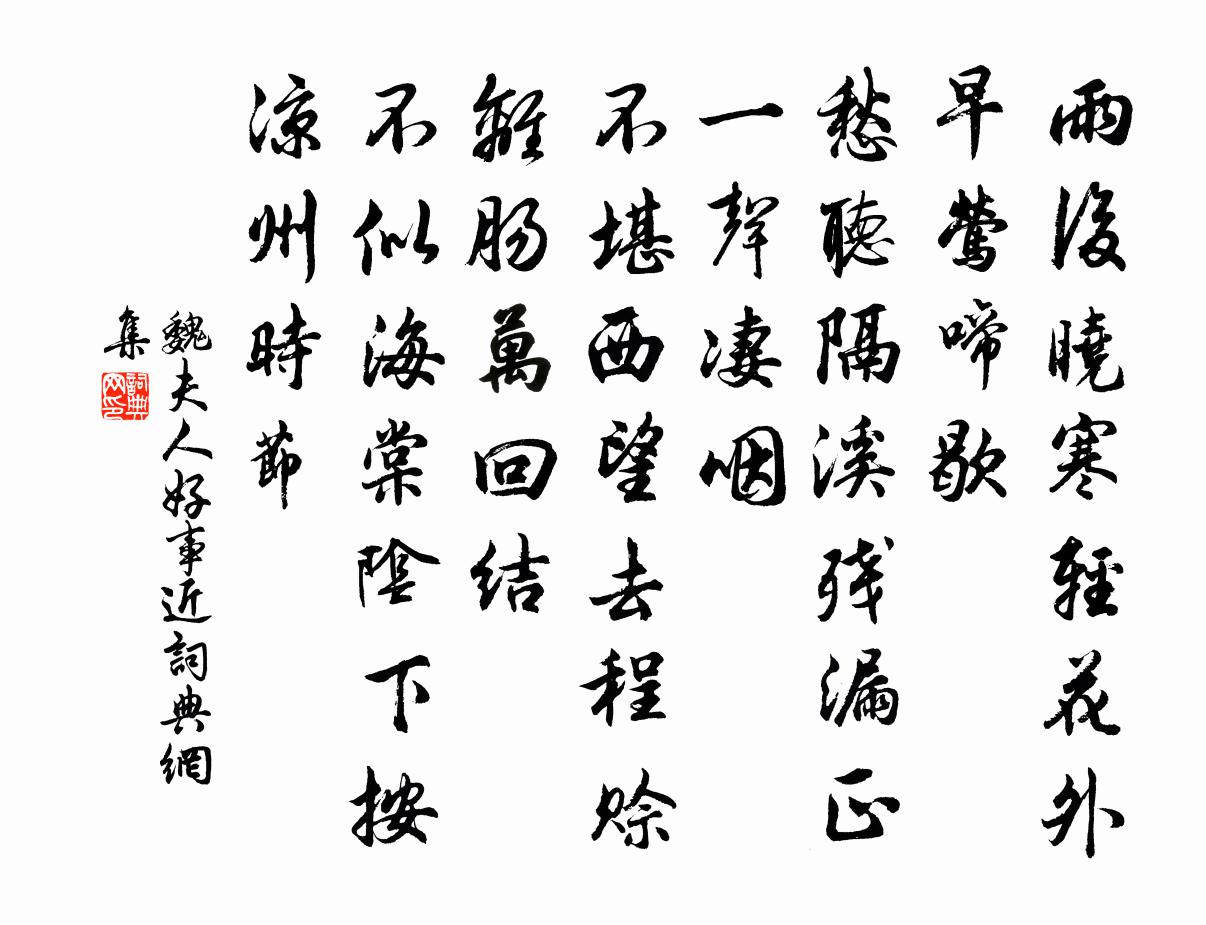 雨後曉寒輕花外
早鶯啼歇
愁聽隔溪殘漏正
一聲淒咽
不堪西望去程賒
離腸萬回結
不似海棠陰下按
涼州時節
魏夫人好事近詞典網
集
詞典
网印